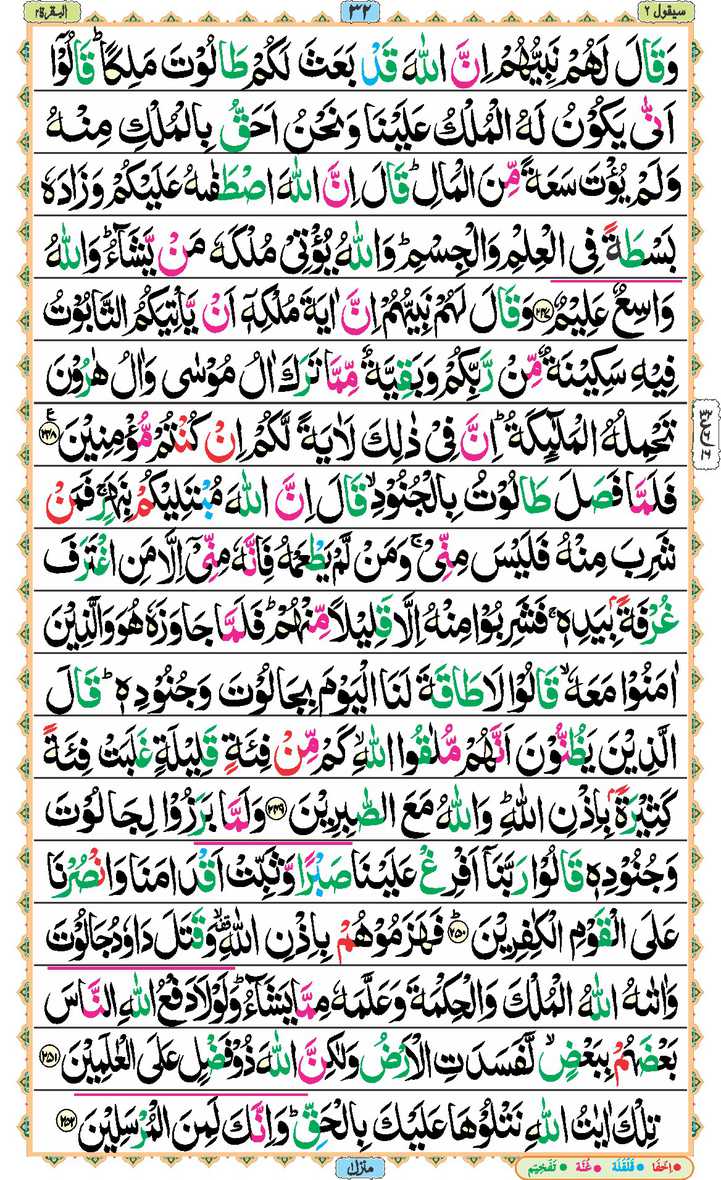 سيقول ٢
٣٢
البقرة ٢
وَقَالَ لَهُمْ نَبِيُّهُمْ اِنَّ اللّٰهَ قَدْ بَعَثَ لَكُمْ طَالُوْتَ مَلِكًا ؕ قَالُوْۤا
اَنّٰى يَكُوْنُ لَهُ الْمُلْكُ عَلَيْنَا وَنَحْنُ اَحَقُّ بِالْمُلْكِ مِنْهُ
وَلَمْ يُؤْتَ سَعَةً مِّنَ الْمَالِ ؕ قَالَ اِنَّ اللّٰهَ اصْطَفٰىهُ عَلَيْكُمْ وَزَادَهٗ
بَسْطَةً فِى الْعِلْمِ وَالْجِسْمِ ؕ وَاللّٰهُ يُؤْتِىْ مُلْكَهٗ مَنْ يَّشَآءُ ؕ وَاللّٰهُ
وَاسِعٌ عَلِيْمٌ ﴿۲۴۷﴾ وَقَالَ لَهُمْ نَبِيُّهُمْ اِنَّ اٰيَةَ مُلْكِهٖۤ اَنْ يَّاْتِيَكُمُ التَّابُوْتُ
فِيْهِ سَكِيْنَةٌ مِّنْ رَّبِّكُمْ وَبَقِيَّةٌ مِّمَّا تَرَكَ اٰلُ مُوْسٰى وَاٰلُ هٰرُوْنَ
تَحْمِلُهُ الْمَلٰٓئِكَةُ ؕ اِنَّ فِىْ ذٰلِكَ لَاٰيَةً لَّكُمْ اِنْ كُنْتُمْ مُّؤْمِنِيْنَ ﴿۲۴۸﴾ ع
فَلَمَّا فَصَلَ طَالُوْتُ بِالْجُنُوْدِ ۙ قَالَ اِنَّ اللّٰهَ مُبْتَلِيْكُمْ بِنَهَرٍ ۚ فَمَنْ
شَرِبَ مِنْهُ فَلَيْسَ مِنِّىْ ۚ وَمَنْ لَّمْ يَطْعَمْهُ فَاِنَّهٗ مِنِّىْۤ اِلَّا مَنِ اغْتَرَفَ
غُرْفَةًۢ بِيَدِهٖ ۚ فَشَرِبُوْا مِنْهُ اِلَّا قَلِيْلًا مِّنْهُمْ ؕ فَلَمَّا جَاوَزَهٗ هُوَ وَالَّذِيْنَ
اٰمَنُوْا مَعَهٗ ۙ قَالُوْا لَا طَاقَةَ لَنَا الْيَوْمَ بِجَالُوْتَ وَجُنُوْدِهٖ ؕ قَالَ
الَّذِيْنَ يَظُنُّوْنَ اَنَّهُمْ مُّلٰقُوا اللّٰهِ ۙ كَمْ مِّنْ فِئَةٍ قَلِيْلَةٍ غَلَبَتْ فِئَةً
كَثِيْرَةًۢ بِاِذْنِ اللّٰهِ ؕ وَاللّٰهُ مَعَ الصّٰبِرِيْنَ ﴿۲۴۹﴾ وَلَمَّا بَرَزُوْا لِجَالُوْتَ
وَجُنُوْدِهٖ قَالُوْا رَبَّنَاۤ اَفْرِغْ عَلَيْنَا صَبْرًا وَّثَبِّتْ اَقْدَامَنَا وَانْصُرْنَا
عَلَى الْقَوْمِ الْكٰفِرِيْنَ ؕ ﴿۲۵۰﴾ فَهَزَمُوْهُمْ بِاِذْنِ اللّٰهِ ۙ۫ وَقَتَلَ دَاوٗدُ جَالُوْتَ
وَاٰتٰىهُ اللّٰهُ الْمُلْكَ وَالْحِكْمَةَ وَعَلَّمَهٗ مِمَّا يَشَآءُ ؕ وَلَوْلَا دَفْعُ اللّٰهِ النَّاسَ
بَعْضَهُمْ بِبَعْضٍ ۙ لَّفَسَدَتِ الْاَرْضُ وَلٰكِنَّ اللّٰهَ ذُوْ فَضْلٍ عَلَى الْعٰلَمِيْنَ ﴿۲۵۱﴾
تِلْكَ اٰيٰتُ اللّٰهِ نَتْلُوْهَا عَلَيْكَ بِالْحَقِّ ؕ وَاِنَّكَ لَمِنَ الْمُرْسَلِيْنَ ﴿۲۵۲﴾
منزل
اِخفَا قَلْقَلَة غُنَّة تَفْخِيْم